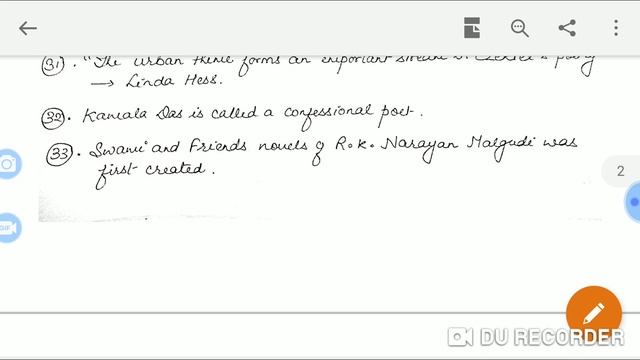 31. "The urban theme forms an important stream in Ezekiel's poetry
→ Linda Hess.
32. Kamala Das is called a confessional poet.
33. Swami and Friends novels of R.K. Narayan Malgudi was
first created.
2
GIF
DU RECORDER